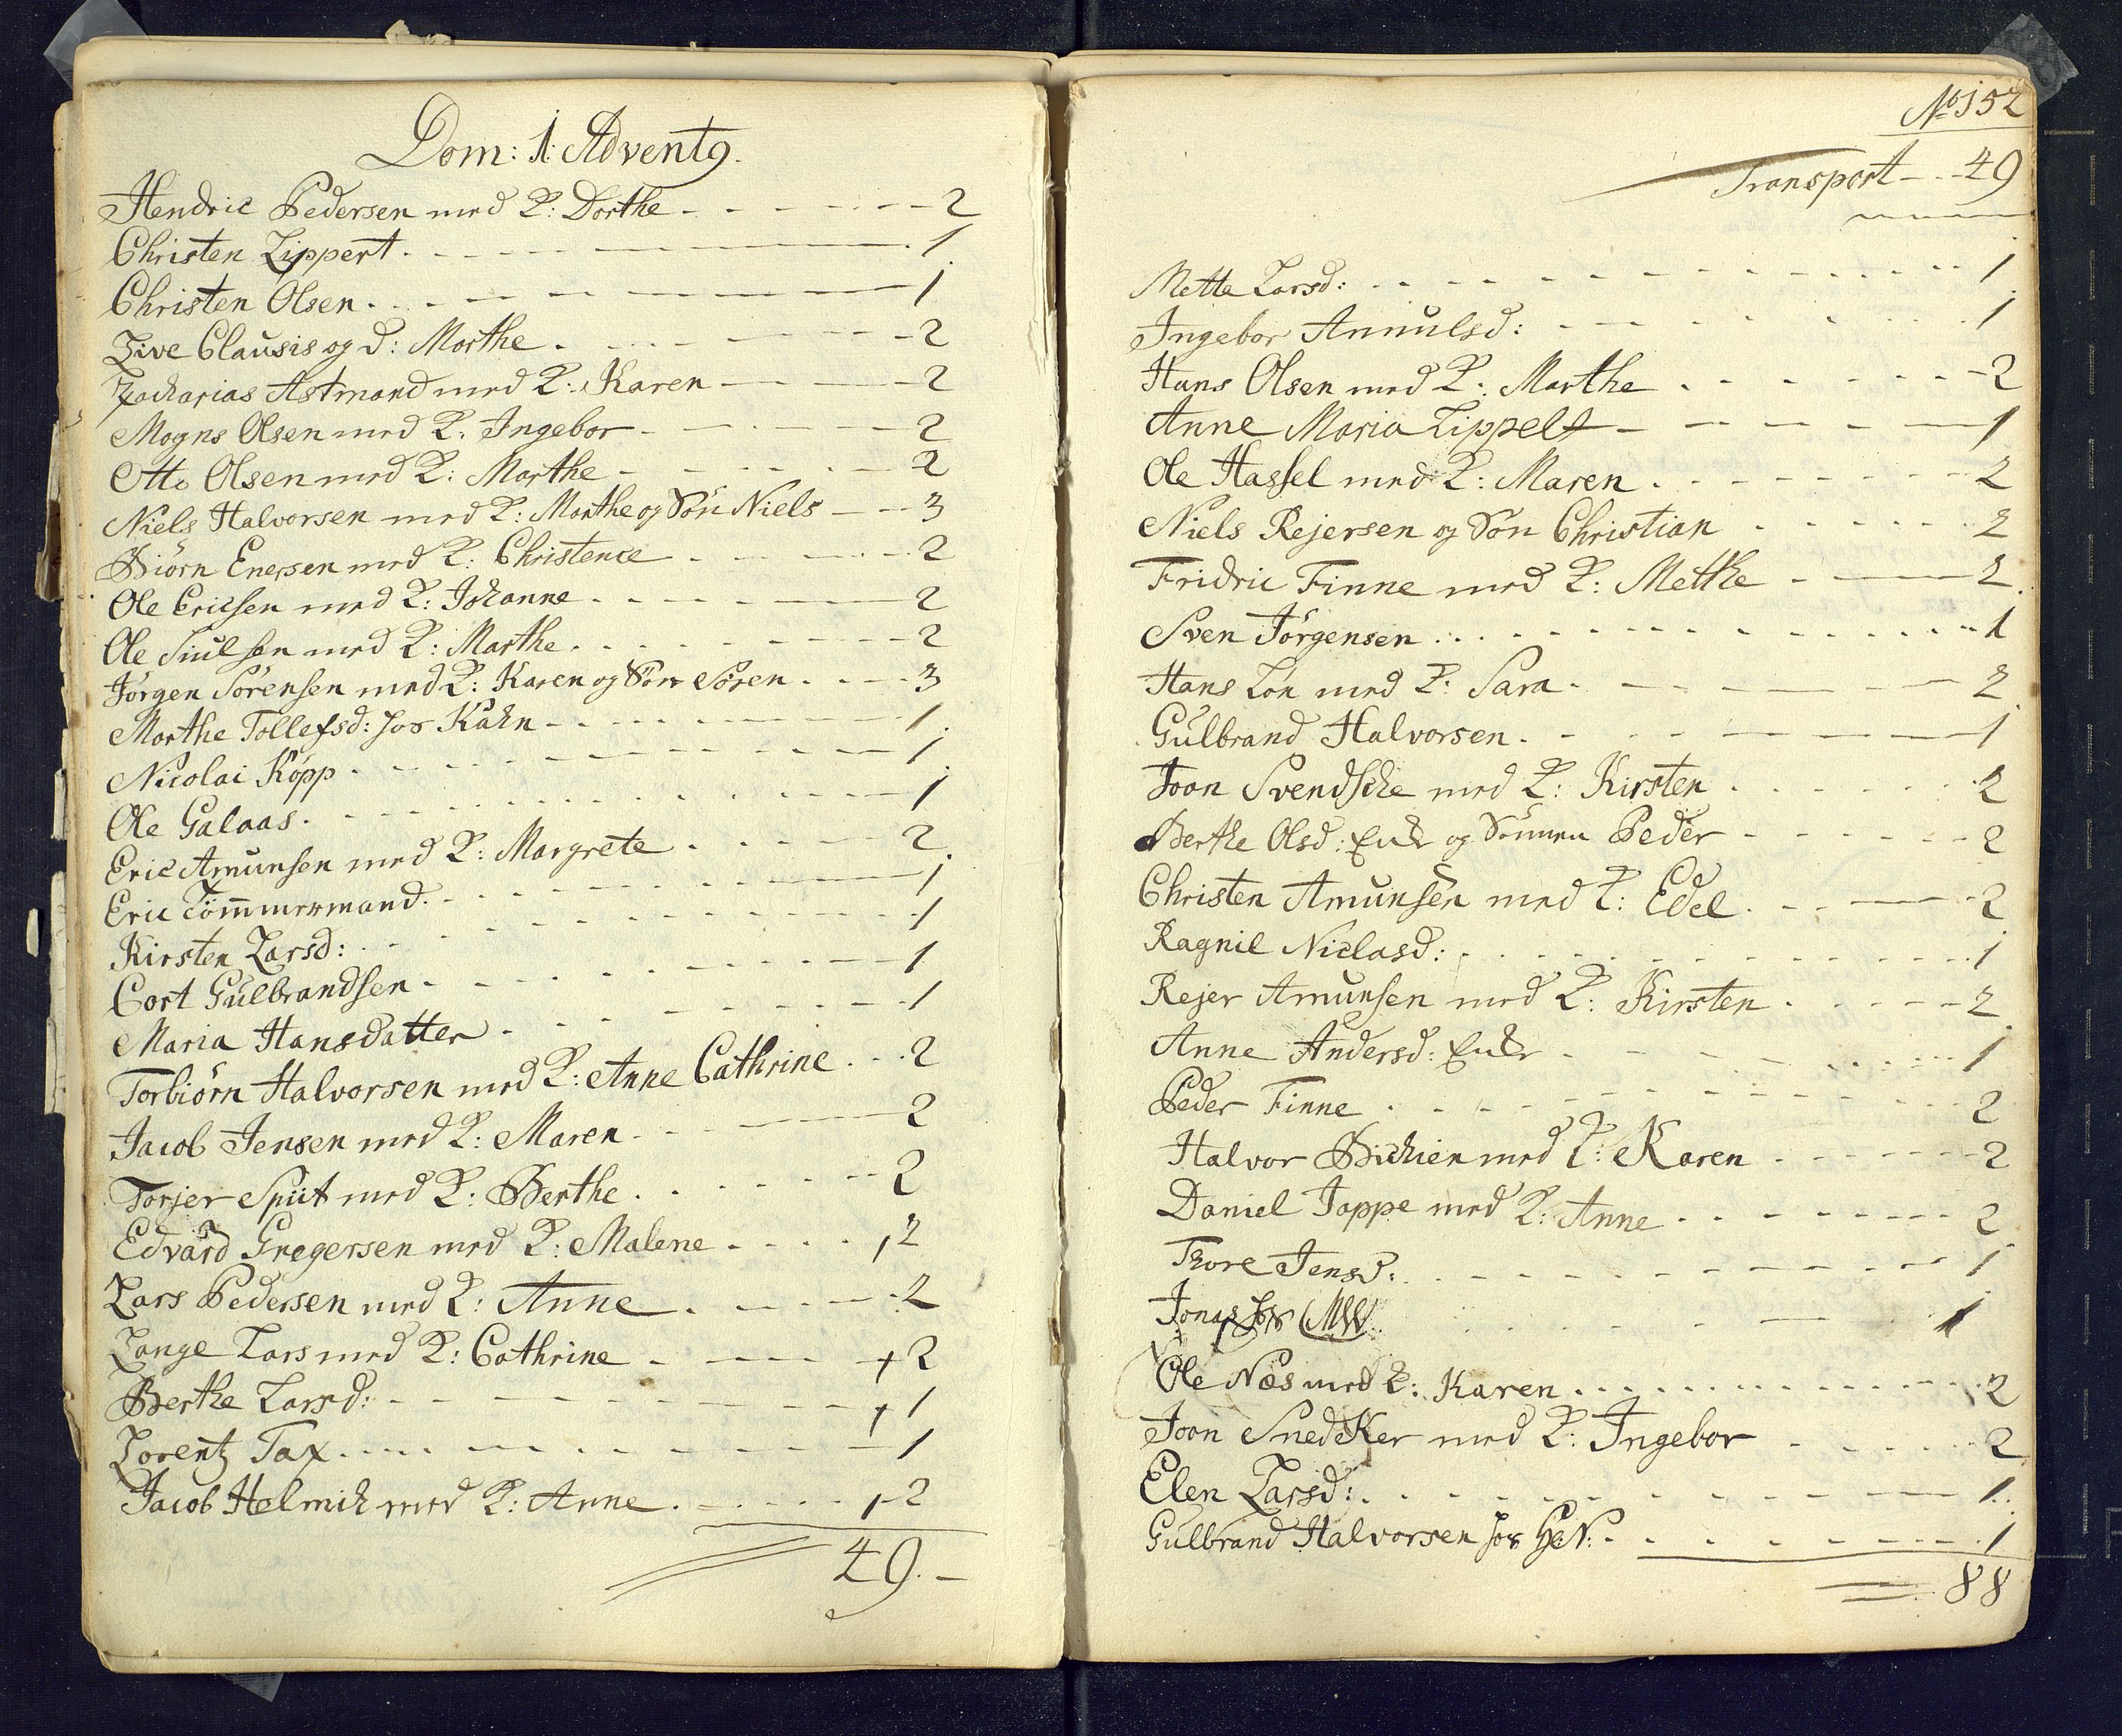 Dom: 1: Advent9.
Hendric Pedersen med K: Dorthe - - - - - - 2
Christen Lippert. - - - - - - - 1
Christen Olsen. - - - - - - - 1
Live Clausis og d: Marthe. - - - - - 2
Zacharias Astmand med K: Karen - - - - 2
Mogns Olsen med K: Ingebor - - - - - 2
Otto Olsen med K: Marthe - - - - - 2
Niels Halvorsen med K: Marthe og Sön Niels - - 3
Biörn Enersen med K: Christence - - - - 2
Ole Ericsen med K: Johanne. - - - - - 2
Ole Siulsen med K: Marthe. - - - - - 2
Jörgen Sörensen med K: Karen og Sön Sören. - - 3
Marthe Tollefsd: hos Kahn - - - - - - 1
Nicolai Köpp. - - - - - - - 1
Ole Galaas. - - - - - - - 1
Eric Amunsen med K: Margrete. - - - - 2
Eric Tömmermand. - - - - - - 1
Kirsten Larsd: - - - - - - - 1
Cort Gulbrandsen - - - - - - - 1
Maria Hansdatter - - - - - - 1
Torbiörn Halvorsen med K: Anne Cathrine. - - 2
Jacob Jensen med K: Maren - - - - - 2
Torjer Spiit med K: Berthe. - - - - - 2
Edvard Gregersen med K: Malene - - - - 2
Lars Pedersen med K: Anne. - - - - - 2
Lange Lars med K: Cathrine - - - + 2
Berthe Larsd: - - - - - - + 1
Lorentz Tax. - - - - - - - 1
Jacob Helmich med K: Anne. - - - - 2
49. -
No 152
Transport - - 49
Mette Larsd: - - - - - - - 1
Ingebor Annulsd: - - - - - - 1
Hans Olsen med K: Marthe. - - - - - 2
Anne Maria Lippelt - - - - - 1
Ole Hassel med K: Maren. - - - - - 2
Niels Rejersen og Sön Christian - - - - 2
Fridric Finne med K: Methe - - - - 2
Sven Jörgensen. - - - - - - - 1
Hans Lön med K: Sara. - - - - - 2
Gulbrand Halvorsen. - - - - - - 1
Joon Svendske med K: Kirsten - - - - 2
Berthe Olsd: Enke og Sönnen Peder - - - - 2
Christen Amunsen med K: Edel. - - - - 2
Ragnil Niclasd: - - - - - - - 1
Rejer Amunsen med K: Kirsten - - - - 2
Anne Andersd: Enke - - - - - - 1
Peder Finne - - - - - - - 2
Halvor Bichien med K: Karen - - - - - 2
Daniel Jappe med K: Anne - - - - - 2
Thore Jensd: - - - - - - - 1
Jonas hos - - - - - - 1
Ole Næs med K: Karen. - - - - - - 2
Joon Snedker med K: Ingebor - - - - 2
Elen Larsd: - - - - - - - 1
Gulbrand Halvorsen hos - - - - - - 1
88